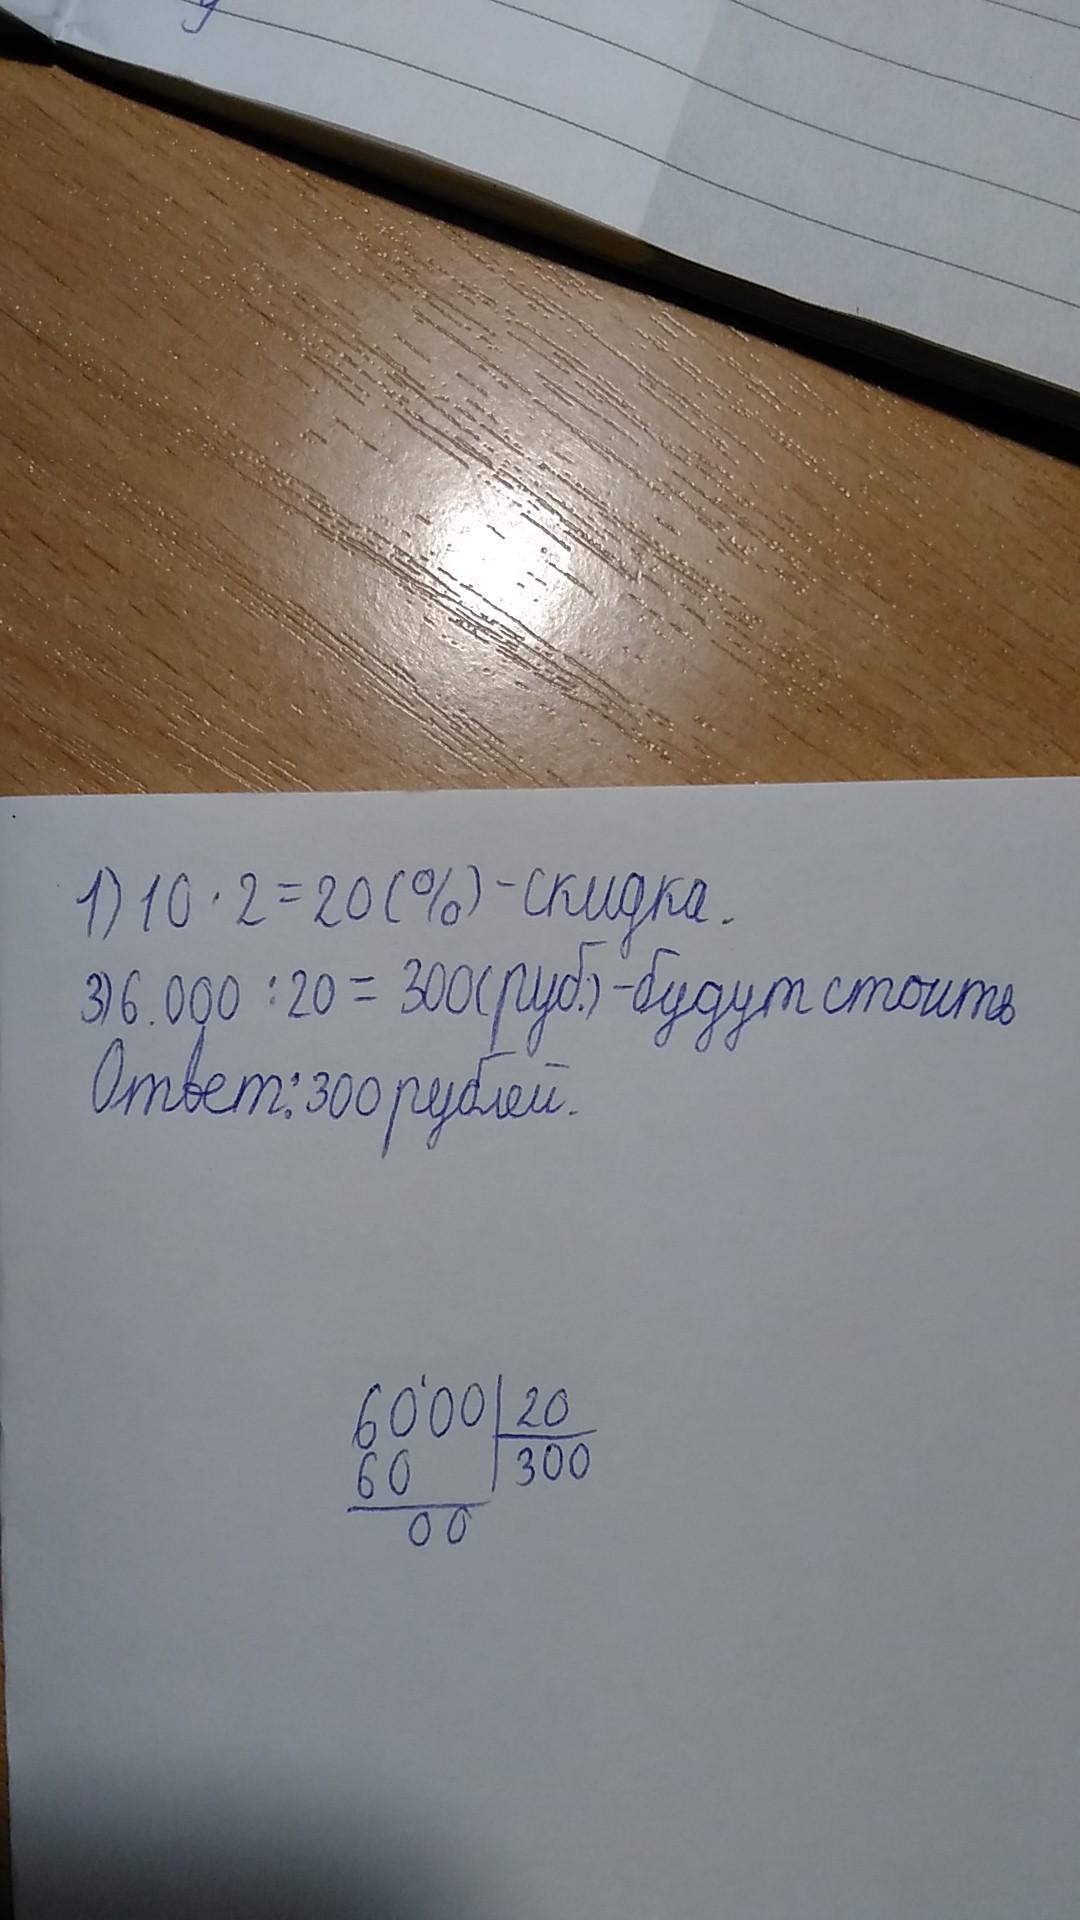 1) 10 · 2 = 20 (%) - скидка.
3) 6.000 : 20 = 300 (руб.) - будут стоить
Ответ: 300 рублей.
6000 | 20
60 | 300
00